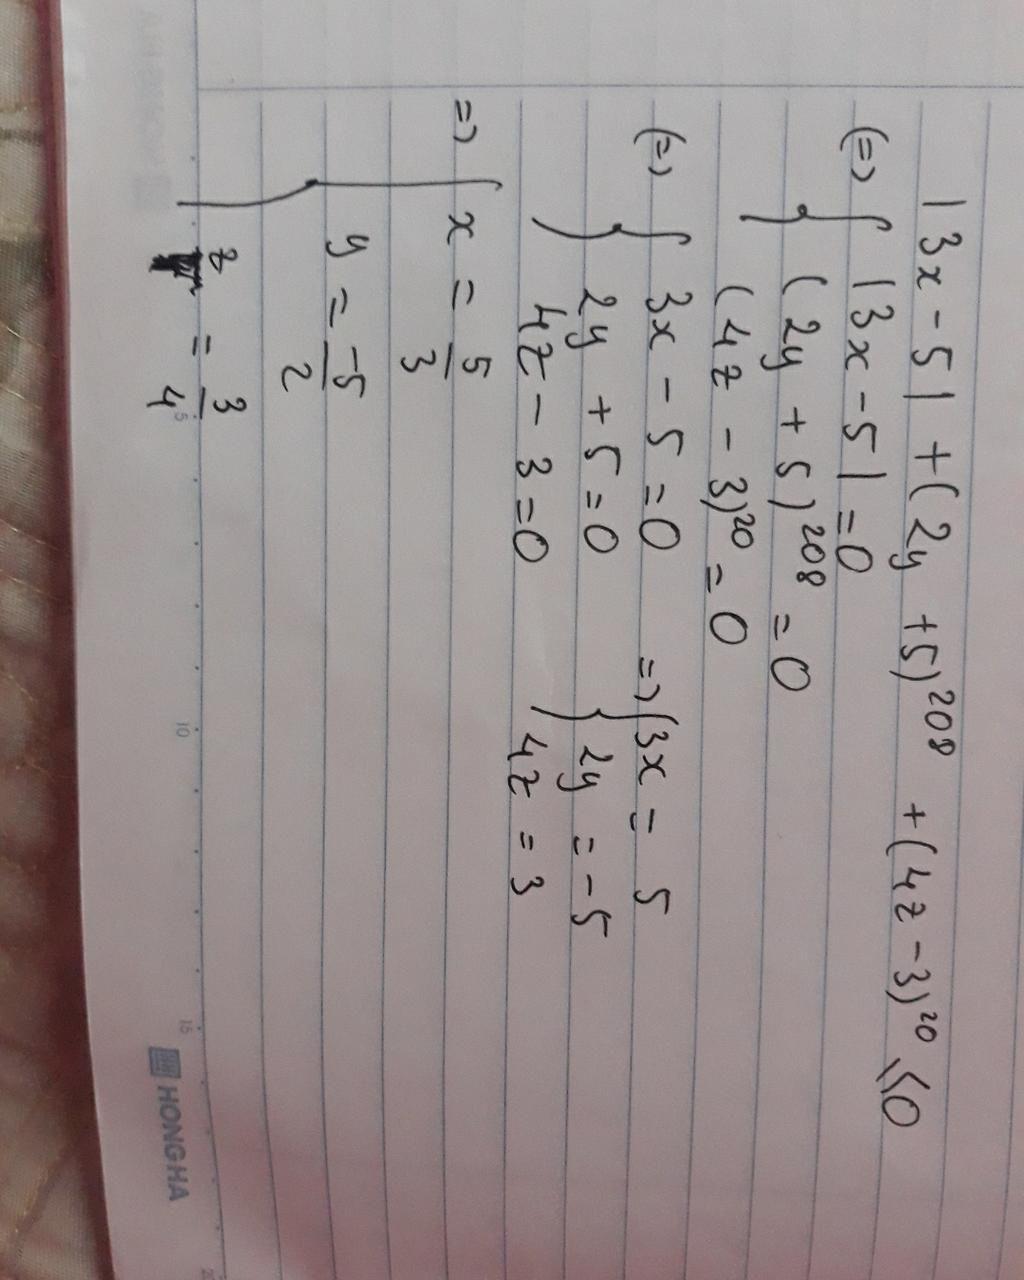 |3x - 5| + (2y + 5)²⁰⁸ + (4z - 3)²⁰ ≤ 0
(=) { |3x - 5| = 0
(2y + 5)²⁰⁸ = 0
(4z - 3)²⁰ = 0
(=) { 3x - 5 = 0 => { 3x = 5
2y + 5 = 0 2y = -5
4z - 3 = 0 4z = 3
=> { x = 5/3
y = -5/2
z = 3/4
5
10
15
HONGHA